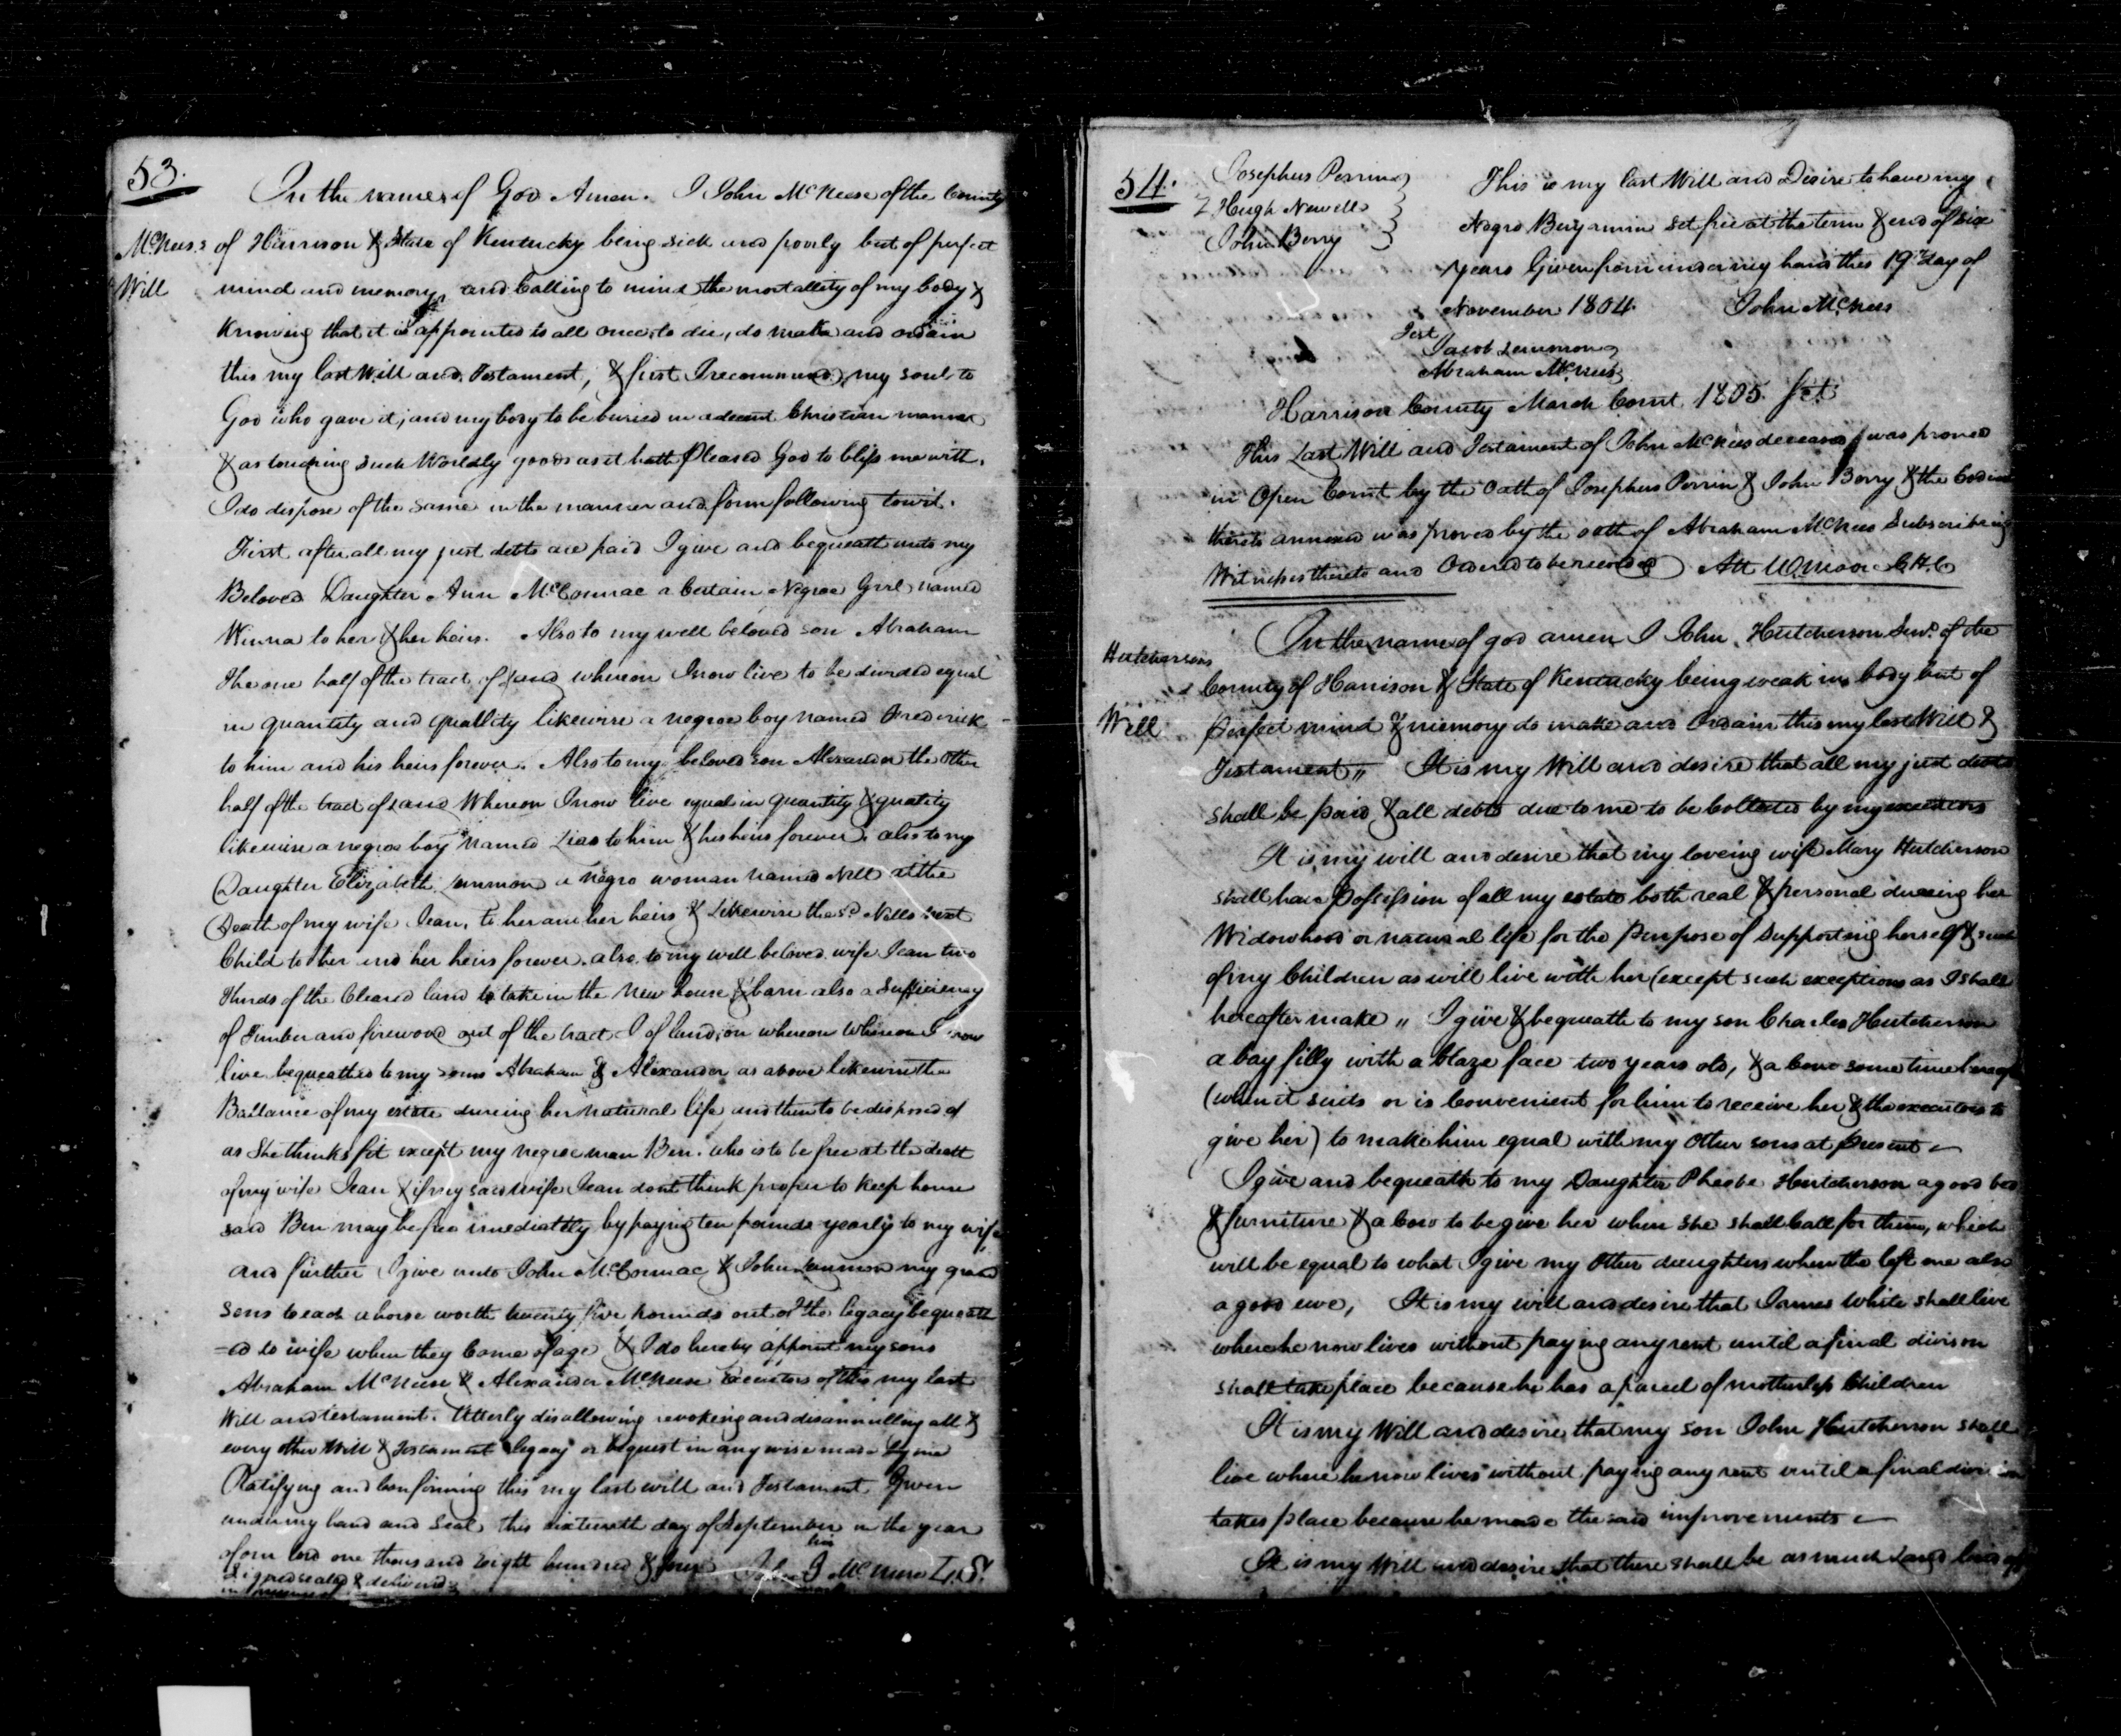 53.
In the name of God Amen. I John McNeese of the County
McNees's of Harrison & State of Kentucky being sick and poorly but of perfect
Will mind and memory, and Calling to mind the mortallity of my body &
Knowing that it is appointed to all once to die, do make and ordain
this my last Will and Testament, & first I recommend my soul to
God who gave it, and my body to be buried in a decent Christian manner
& as touching such Worldly goods as it hath pleased God to bless me with.
I do dispose of the same in the manner and form following towit.
First after all my just debts are paid I give and bequeath unto my
Beloved Daughter Ann McCormac a Certain Negroe Girl named
Winna to her & her heirs. Also to my well beloved son Abraham
The one half of the tract of land whereon I now live to be divided equal
in quantity and quallity likewise a negroe boy named Frederick
to him and his heirs forever. Also to my beloved son Alexander the other
half of the tract of land Whereon I now live equal in quantity & quality
likewise a negroe boy named to him & his heirs forever. also to my
Daughter Elizabeth Lemmon a negro woman named Nell at the
Death of my wife Jean, to her and her heirs & Likewise the sd. Nells next
Child to her and her heirs forever. also to my well beloved wife Jean two
thirds of the Cleared land to take in the new house & barn also a Sufficiency
of Timber and firewood out of the tract of land, on whereon Whereon I now
live bequeathed to my sons Abraham & Alexander as above likewise the
Ballance of my estate dureing her natural life and then to be disposed of
as She thinks fit except my negroe man Ben. who is to be free at the death
of my wife Jean & if my said wife Jean dont think proper to keep house
said Ben may be free imediattly by paying ten pounds yearly to my wife
and further I give unto John McCormac & John Lemmon my grand
sons to each a horse worth twenty five pounds out of the legacy bequeath
=ed to wife when they Come of age & I do hereby appoint my sons
Abraham McNeese & Alexander McNeese Executors of this my last
Will and testament. Utterly disallowing revoking and disannulling all &
every other Will & Testament legacy or bequest in any wise made by me
Ratifying and Confirming this my last will and Testament Given
under my hand and seal this sixteenth day of September in the year
of our lord one thousand Eight hundred & four John his J mark McNeese L.S.
Signed sealed & delivered
in presence of
54.
Josephus Perrin
Hugh Newell
John Berry
This is my last Will and Desire to have my
Negro Benjamin set free at the term & end of six
years Given from under my hand this 19th day of
November 1804. John McNees
Test
Jacob Lemmon
Abraham McNees
Harrison County March Court 1805. Sct.
This Last Will and Testament of John McNees deceased was proved
in Open Court by the Oath of Josephus Perrin & John Berry & the Codicil
thereto annexed was proved by the oath of Abraham McNees Subscribing
Witnesses thereto and Ordered to be recorded Att W. Moore C.H.C
In the name of god amen I John Hutcherson Senr. of the
Hutchersons County of Harrison & State of Kentucky being weak in body but of
Will perfect mind & memory do make and Ordain this my last Will &
Testament,, It is my Will and desire that all my just debts
shall be paid & all debts due to me to be Collected by my executors
It is my will and desire that my loveing wife Mary Hutcherson
shall have possession of all my estate both real & personal dureing her
Widowhood or natural life for the purpose of supporting herself & such
of my Children as will live with her (except such exceptions as I shall
hereafter make ,, I give & bequeath to my son Charles Hutcherson
a bay filly with a blaze face two years old, & a Cow some time hence
(when it suits or is Convenient for him to receive her & the executors to
give her) to make him equal with my other sons at present
I give and bequeath to my Daughter Pheobe Hutcherson a good bed
& furniture & a Cow to be give her when she shall Call for them, which
will be equal to what I give my other daughters when the left me also
a good ewe, It is my will and desire that James White shall live
where he now lives without paying any rent until a final divison
shall take place because he has a parcel of motherless Children
It is my Will and desire that my son John Hutcherson shall
live where he now lives without paying any rent until a final division
takes place because he made the said improvements
It is my Will and desire that there shall be as much Land